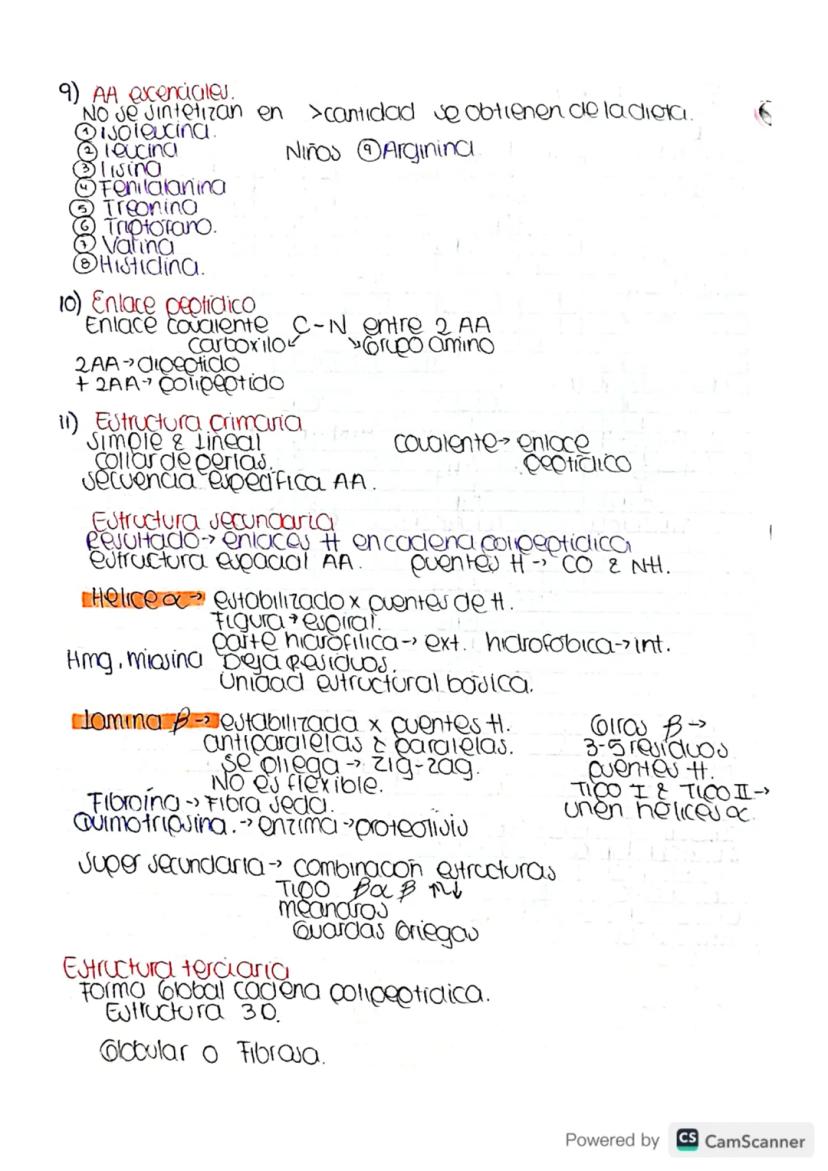 9) AA escenciales.
No se sintetizan en >cantidad se obtienen de la dieta.
① isoleucina.
② leucina
Niños ⑨ Arginina
③ lisina
④ Fenilalanina
⑤ Treonina
⑥ Triptofano.
⑦ Valina
⑧ Histidina.
10) Enlace peptidico
Enlace covalente C-N entre 2 AA
carboxilo↙ ↘Grupo amino
2AA→dipeptido
+ 2AA→ polipeptido
11) Estructura primaria
simple & lineal
covalente→ enlace
collar de perlas.
peptidico
secuencia especifica AA.
Estructura secundaria
Resultado→ enlaces H en cadena polipeptidica
estructura espacial AA. puentes H→ CO & NH.
Helice α→ estabilizado x puentes de H.
Figura→ espiral.
parte hidrofilica→ ext. hidrofobica→ int.
Hmg, miosina Deja Residuos.
Unidad estructural basica.
Lamina β→ estabilizada x puentes H.
Giros β→
antiparalelas & paralelas.
3-5 residuos
se pliega→ zig-zag.
puentes H.
No es flexible.
Tipo I & Tipo II→
Fibroína→ Fibra seda.
unen helices α.
Quimotripsina.→ enzima→proteolisis
Super secundaria→ combinacon estructuras
Tipo βαβ ↑↓
meandros
Guardas Griegas
Estructura terciaria
Forma Global cadena polipeptidica.
Estructura 3D.
Globular o Fibrosa.
Powered by CS CamScanner